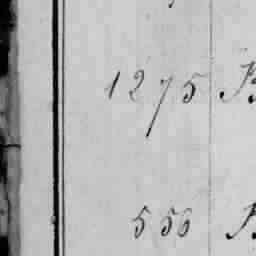 1275
556